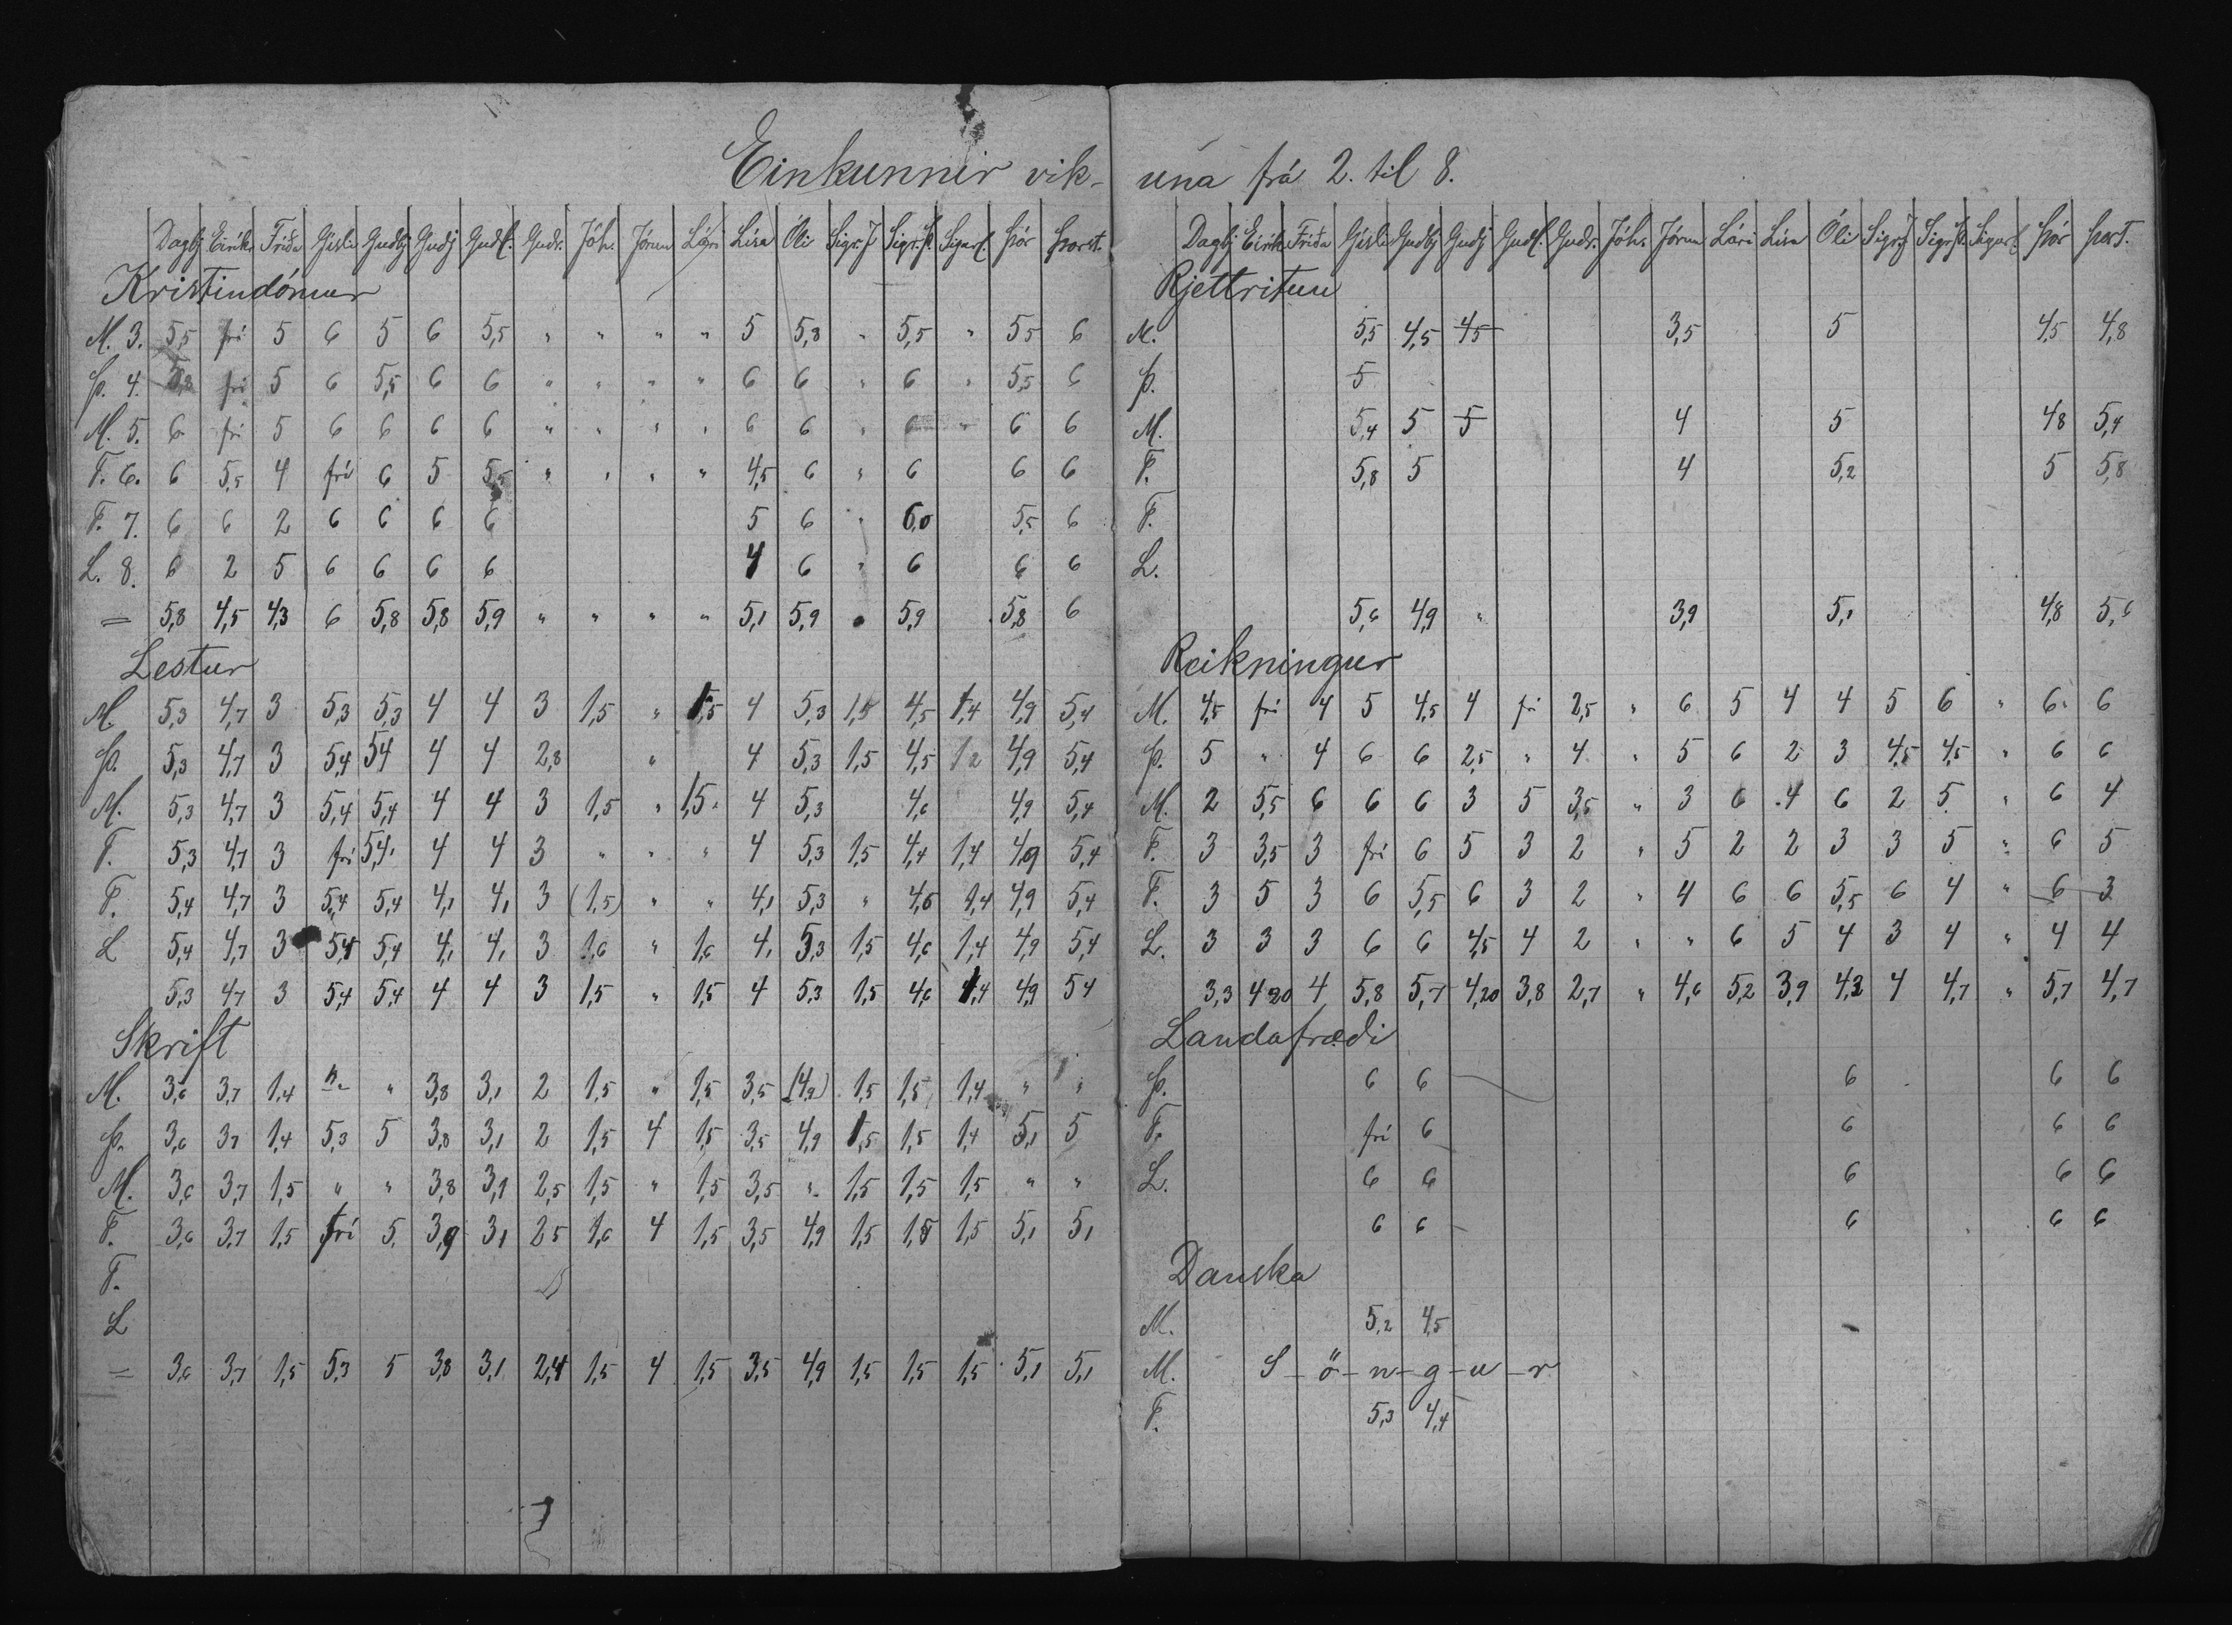 Einkunnir vik-
Dagbj Eirík. Fríða Gísli Gudbj Gudj Gudl. Gudr. Jóh. Jórun Lári Lísa Óli Sigr. J Sigr. Þ. Sigurl. Þór Þorst.
Kristindómur
M. 3. 5,5 frí 5 6 5 6 5,5 " " " " 5 5,8 " 5,5 " 5,5 6
Þ. 4. 5,8 frí 5 6 5,5 6 6 " " " " 6 6 " 6 " 5,5 6
M. 5. 6 frí 5 6 6 6 6 " " " " 6 6 " 6 " 6 6
F. 6. 6 5,5 4 frí 6 5 5,5 " " " " 4,5 6 " 6 6 6
F. 7. 6 6 2 6 6 6 6 5 6 " 6,0 5,5 6
L. 8. 6 2 5 6 6 6 6 4 6 " 6 6 6
= 5,8 4,5 4,3 6 5,8 5,8 5,9 " " " " 5,1 5,9 " 5,9 5,8 6
Lestur
M. 5,3 4,7 3 5,3 5,3 4 4 3 1,5 " 1,5 4 5,3 1,5 4,5 1,4 4,9 5,4
Þ. 5,3 4,7 3 5,4 5,4 4 4 2,8 " 4 5,3 1,5 4,5 1,2 4,9 5,4
M. 5,3 4,7 3 5,4 5,4 4 4 3 1,5 " 1,5 4 5,3 4,6 4,9 5,4
F. 5,3 4,7 3 frí 5,4 4 4 3 " " " 4 5,3 1,5 4,4 1,4 4,9 5,4
F. 5,4 4,7 3 5,4 5,4 4,1 4,1 3 (1,5) " " 4,1 5,3 " 4,6 1,4 4,9 5,4
L 5,4 4,7 3 5,4 5,4 4,1 4,1 3 1,6 " 1,6 4,1 5,3 1,5 4,6 1,4 4,9 5,4
5,3 4,7 3 5,4 5,4 4 4 3 1,5 " 1,5 4 5,3 1,5 4,6 1,4 4,9 5,4
Skrift
M. 3,6 3,7 1,4 " 3,8 3,1 2 1,5 " 1,5 3,5 (4,9) 1,5 1,5 1,4 " "
Þ. 3,6 3,7 1,4 5,3 5 3,8 3,1 2 1,5 4 1,5 3,5 4,9 1,5 1,5 1,4 5,1 5
M. 3,6 3,7 1,5 " " 3,8 3,1 2,5 1,5 " 1,5 3,5 " 1,5 1,5 1,5 " "
F. 3,6 3,7 1,5 frí 5 3,9 3,1 2,5 1,6 4 1,5 3,5 4,9 1,5 1,5 1,5 5,1 5,1
F.
L
= 3,6 3,7 1,5 5,3 5 3,8 3,1 2,4 1,5 4 1,5 3,5 4,9 1,5 1,5 1,5 5,1 5,1
una frá 2. til 8.
Dagbj Eirík Fríða Gísli Gudbj Gudj Gudl. Gudr. Jóh. Jórun Lári Lísa Óli Sigr. J Sigr. Þ. Sigurl. Þór Þorst.
Rjettritun
M. 5,5 4,5 4,5 3,5 5 4,5 4,8
Þ. 5
M. 5,4 5 5 4 5 4,8 5,4
F. 5,8 5 4 5,2 5 5,8
F.
L.
5,6 4,9 " 3,9 5,1 4,8 5,6
Reikningur
M. 4,5 frí 4 5 4,5 4 frí 2,5 " 6 5 4 4 5 6 " 6 6
Þ. 5 " 4 6 6 2,5 " 4 " 5 6 2 3 4,5 4,5 " 6 6
M. 2 5,5 6 6 6 3 5 3,5 " 3 6 4 6 2 5 " 6 4
F. 3 3,5 3 frí 6 5 3 2 " 5 2 2 3 3 5 " 6 5
F. 3 5 3 6 5,5 6 3 2 " 4 6 6 5,5 6 4 " 6 3
L. 3 3 3 6 6 4,5 4 2 " " 6 5 4 3 4 " 4 4
3,3 4,20 4 5,8 5,7 4,20 3,8 2,7 " 4,6 5,2 3,9 4,3 4 4,7 " 5,7 4,7
Landafræði
Þ. 6 6 6 6 6
F. frí 6 6 6 6
L. 6 6 6 6 6
6 6 6 6 6
Danska
M. 5,2 4,5
M. S - ö - n - g - u - r
F. 5,3 4,4